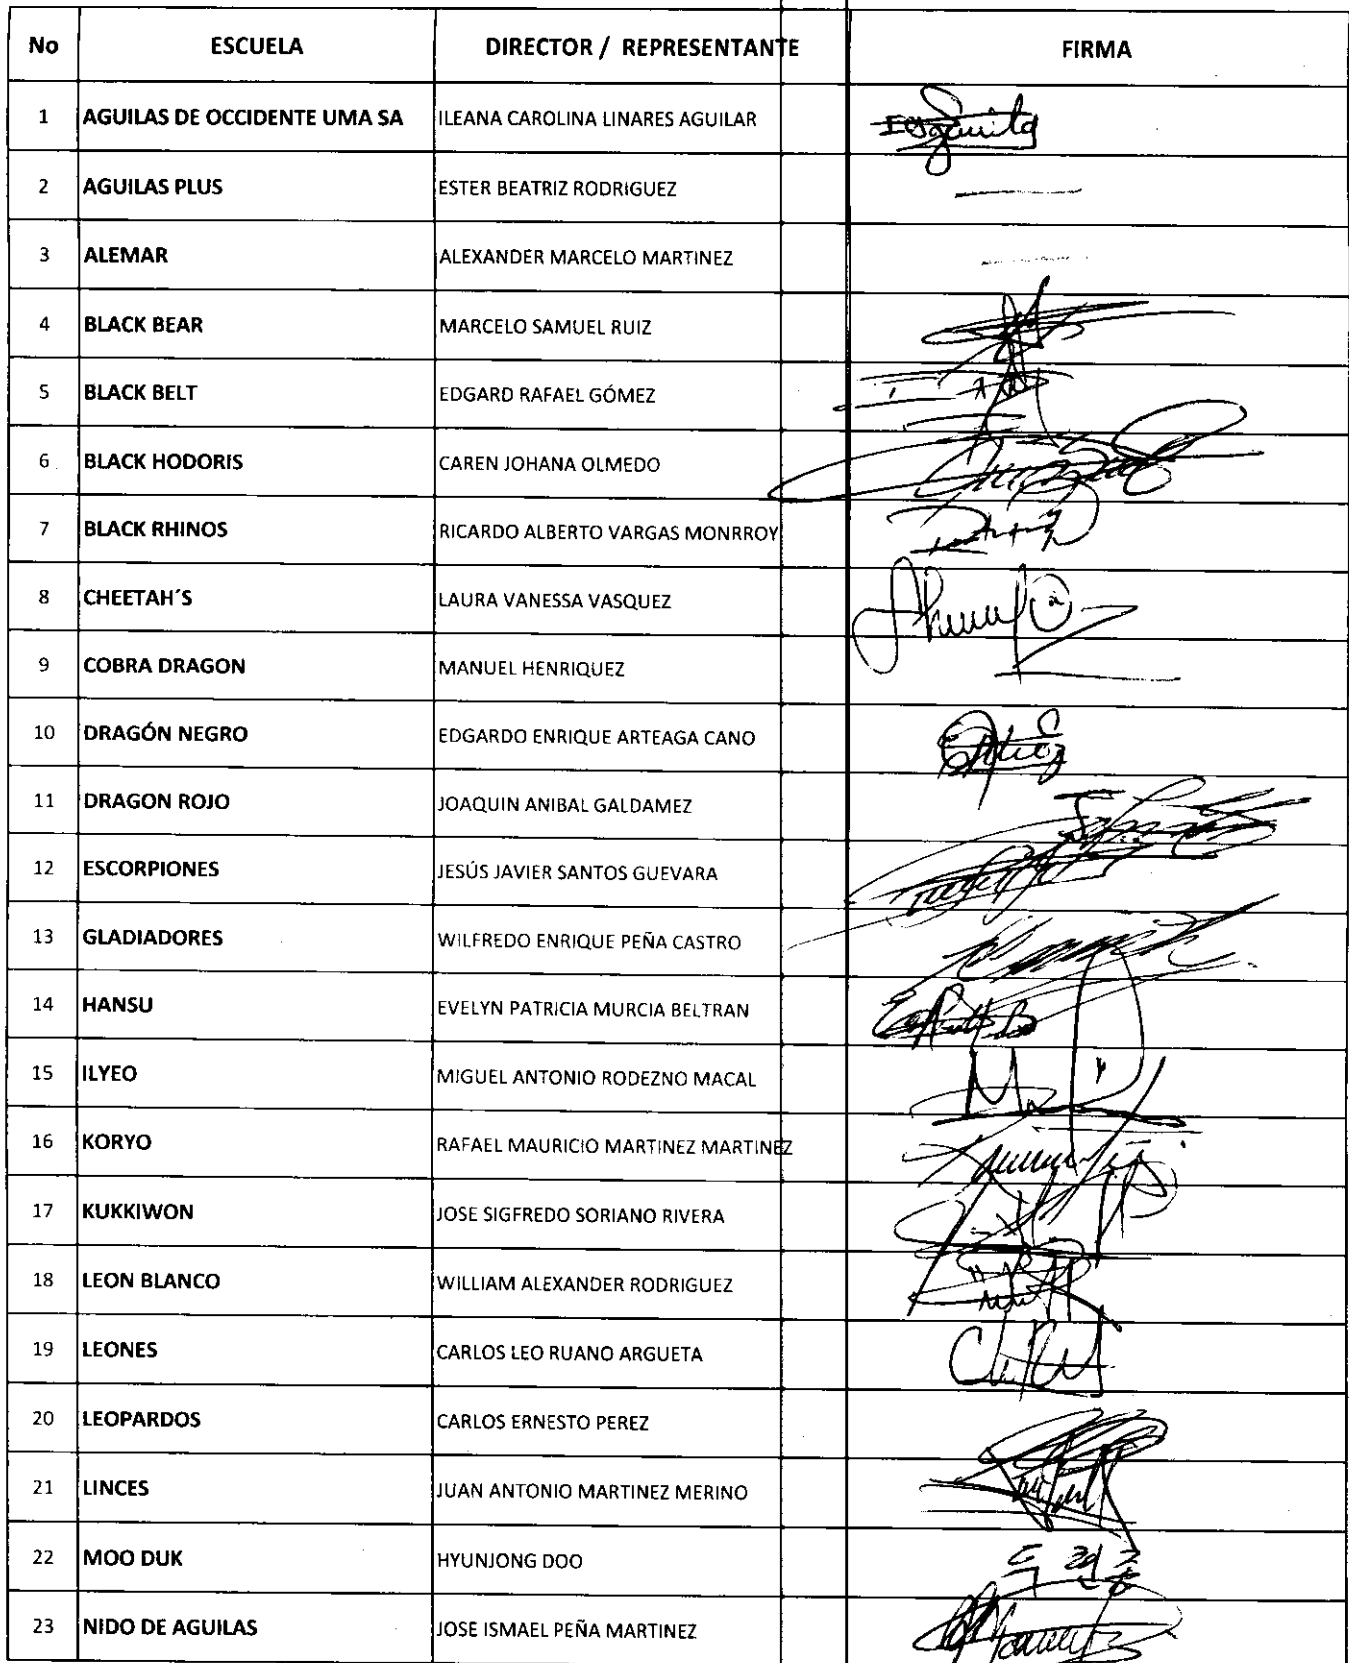 No ESCUELA DIRECTOR / REPRESENTANTE FIRMA
1 AGUILAS DE OCCIDENTE UMA SA ILEANA CAROLINA LINARES AGUILAR
2 AGUILAS PLUS ESTER BEATRIZ RODRIGUEZ
3 ALEMAR ALEXANDER MARCELO MARTINEZ
4 BLACK BEAR MARCELO SAMUEL RUIZ
5 BLACK BELT EDGARD RAFAEL GÓMEZ
6 BLACK HODORIS CAREN JOHANA OLMEDO
7 BLACK RHINOS RICARDO ALBERTO VARGAS MONRROY
8 CHEETAH´S LAURA VANESSA VASQUEZ
9 COBRA DRAGON MANUEL HENRIQUEZ
10 DRAGÓN NEGRO EDGARDO ENRIQUE ARTEAGA CANO
11 DRAGON ROJO JOAQUIN ANIBAL GALDAMEZ
12 ESCORPIONES JESÚS JAVIER SANTOS GUEVARA
13 GLADIADORES WILFREDO ENRIQUE PEÑA CASTRO
14 HANSU EVELYN PATRICIA MURCIA BELTRAN
15 ILYEO MIGUEL ANTONIO RODEZNO MACAL
16 KORYO RAFAEL MAURICIO MARTINEZ MARTINEZ
17 KUKKIWON JOSE SIGFREDO SORIANO RIVERA
18 LEON BLANCO WILLIAM ALEXANDER RODRIGUEZ
19 LEONES CARLOS LEO RUANO ARGUETA
20 LEOPARDOS CARLOS ERNESTO PEREZ
21 LINCES JUAN ANTONIO MARTINEZ MERINO
22 MOO DUK HYUNJONG DOO
23 NIDO DE AGUILAS JOSE ISMAEL PEÑA MARTINEZ